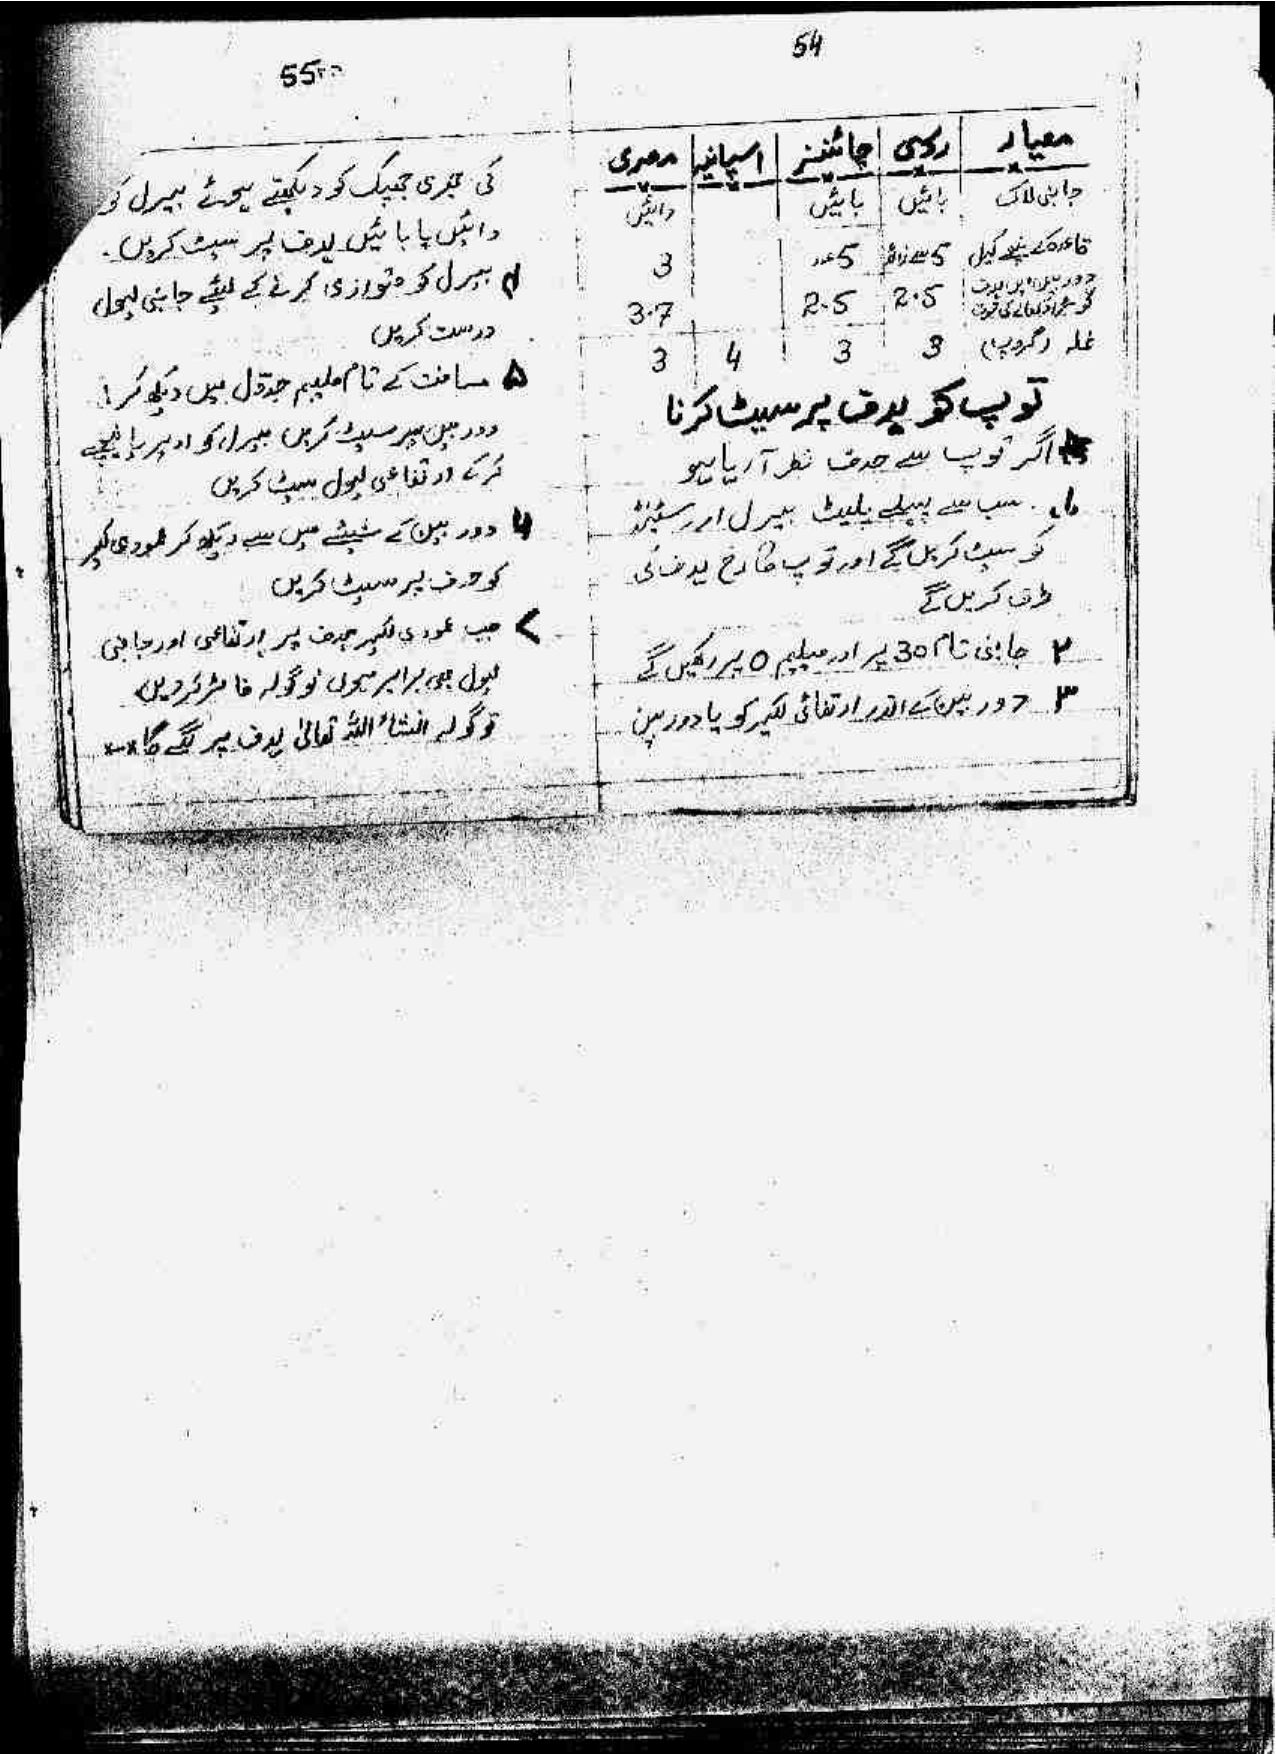 54
معیار روسی چائنیز اسپانیہ مصری
جانبی لاک بائیں بائیں دائیں
قاعدہ کے نیچے کیل 5 سے زائد 5 عدد 3
دوربین میں ہدف
کو بڑا دکھانے کی قوت 2.5 2.5 3.7
غلہ (گروپ) 3 3 4 3
توپ کو ہدف پر سیٹ کرنا
اگر توپ سے ھدف نظر آ رہا ہو
۱۔ سب سے پہلے پلیٹ بیرل اور سٹینڈ
کو سیٹ کریں گے اور توپ کا رخ ہدف کی
طرف کریں گے
۲ جانبی تام 30 پر اور میلیم 0 پر رکھیں گے
۳ دوربین کے اندر ارتفاعی لکیر کو یا دوربین
55
کی کو دیکھتے ہوئے بیرل کو
دائیں یا بائیں ہدف پر سیٹ کریں۔
۴ بیرل کو متوازی کرنے کے لیئے جانبی لیول
درست کریں
۵ مسافت کے تام ملیم جدول میں دیکھ کر
دوربین پر سیٹ کریں بیرل کو اوپر یا نیچے
کرکے ارتفاعی لیول سیٹ کریں
۶ دوربین کے شیشے میں سے دیکھ کر عمودی لکیر
کو ھدف پر سیٹ کریں
۷ جب عمودی لکیر ھدف پر ارتفاعی اور جانبی
لیول بھی برابر ہوں تو گولہ فائر کر دیں
تو گولہ انشاء اللہ تعالیٰ ہدف پر لگے گا